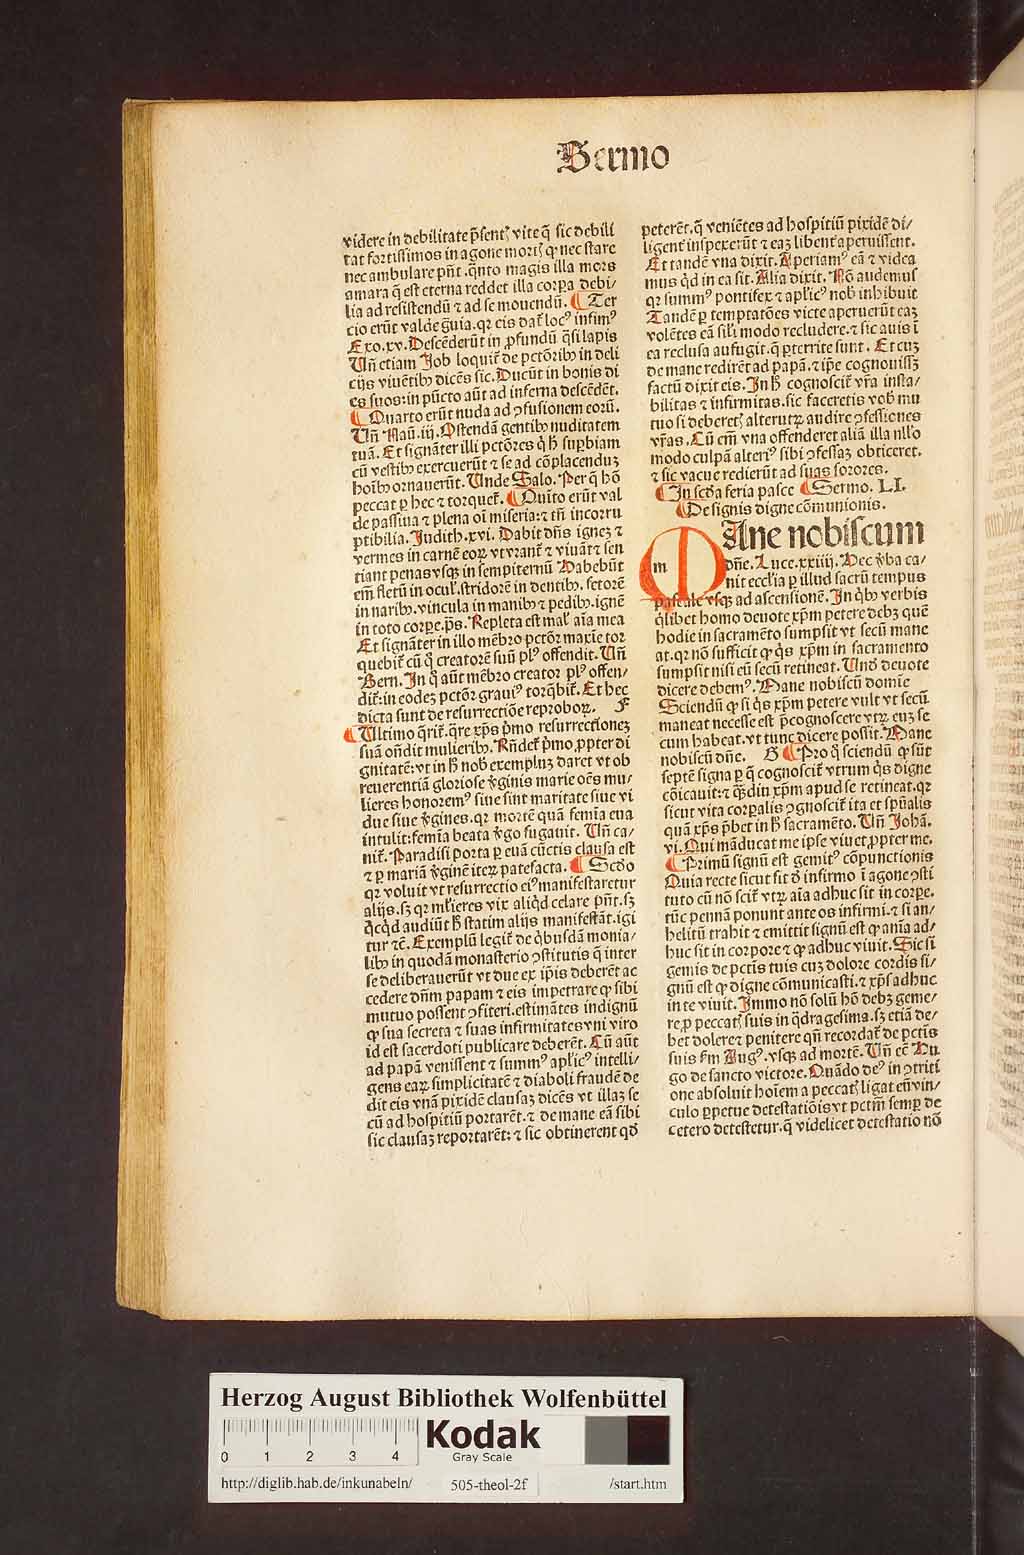 Sermo
videre in debilitate p̄senꝭ vite q̄ sic debili
tat fortissimos in agone morꝭ ꝙ nec stare
nec ambulare pn̄t. qn̄to magis illa mors
amara q̄ est eterna reddet illa corꝑa debi/
lia ad resistendū ⁊ ad se mouendū. ¶ Ter
cio erūt valde ḡuia. qꝛ eis dat̄ locꝰ infimꝰ
Exo. xv. Descēderūt in ꝓfundū q̄si lapis
Un̄ etiam Job loquit̄ de pctōribꝫ in deli
cijs viuētibꝫ dicēs sic. Ducūt in bonis di
es suos: in pūcto aūt ad inferna descēdēt.
¶ Quarto erūt nuda ad ꝯfusionem eoꝝ.
Un̄ Nau. iij. Ostendā gentibꝫ nuditatem
tuā. Et signāter illi pctōres q̇ h̄ suꝑbiam
cū vestibꝫ exercuerūt ⁊ se ad cōplacenduꝫ
hoībꝫ ornauerūt. Unde Salo. Per q̄ hō
peccat ꝑ hec ⁊ torquet̄. ¶ Quīto erūt val
de passiua ⁊ plena oī miseria: ⁊ tn̄ incorru
ptibilia. Judith. xvi. Dabit dn̄s igneꝫ ⁊
vermes in carnē eoꝝ vt vrant̄ ⁊ viuāt ⁊ sen
tiant penas vsqꝫ in sempiternū Habebūt
em̄ fletū in ocul̓. stridorē in dentibꝫ. fetorē
in naribꝫ. vincula in manibꝫ ⁊ pedibꝫ. ignē
in toto corꝑe. p̄s. Repleta est mal̓ aīa mea
Et signāter in illo mēbro pctōꝝ maxīe tor
quebit̄ cū q̇ creatorē suū plꝰ offendit. Un̄
Bern. In q̇ aūt mēbro creator plꝰ offen/
dit̄: in eodeꝫ pctōꝝ grauiꝰ torq̄bit̄. Et hec
dicta sunt de resurrectiōe reproboꝝ. F
¶ Ultimo q̄rit̄. q̄re xp̄s p̄mo resurrectioneꝫ
suā on̄dit mulieribꝫ. Rn̄det̄ p̄mo ꝓpter di
gnitatē: vt in h̄ nob̓ exempluꝫ daret vt ob
reuerentiā gloriose ꝟginis marie oēs mu/
lieres honoremꝰ siue sint maritate siue vi
due siue ꝟgines. qꝛ mortē quā femīa eua
intulit: femīa beata ꝟgo fugauit. Un̄ ca/
nit̄. Paradisi porta ꝑ euā cūctis clausa est
⁊ ꝑ mariā ꝟginē iteꝝ patefacta. ¶ Scdo
qꝛ voluit vt resurrectio eiꝰ manifestaretur
alijs. sꝫ qꝛ ml̓ieres vix aliq̇d celare pn̄t. sꝫ
q̇cq̇d audiūt h̄ statim alijs manifestāt. igi
tur ⁊c̄. Exemplū legit̄ de q̇busdā monia/
libꝫ in quodā monasterio ꝯstitutis q̄ inter
se deliberauerūt vt due ex ip̄is deberēt ac
cedere dn̄m papam ⁊ eis impetrare ꝙ sibi
mutuo possent ꝯfiteri. estimātes indignū
ꝙ sua secreta ⁊ suas infirmitates vni viro
id est sacerdoti publicare deberēt. Cū aūt
ad papā venissent ⁊ summꝰ apl̓icꝰ intelli/
gens eaꝝ simplicitatē ⁊ diaboli fraudē de
dit eis vnā pixidē clausaꝫ dicēs vt illaꝫ se
cū ad hospitiū portarēt. ⁊ de mane eā sibi
sic clausaꝫ reportarēt: ⁊ sic obtinerent qd̓
peterēt. q̄ veniētes ad hospitiū pixidē di/
ligent̄ inspexerūt ⁊ eaꝫ libent̄ aperuissent.
Et tandē vna dixit. Aperiamꝰ eā ⁊ videa
mus q̇d in ea sit. Alia dixit. Nō audemus
qꝛ summꝰ pontifex ⁊ apl̓icꝰ nob̓ inhibuit
Tandē ꝑ temptatōes victe aperuerūt eaꝫ
volētes eā sil̓i modo recludere. ⁊ sic auis ī
ea reclusa aufugit. q̄ ꝑterrite sunt. Et cuꝫ
de mane redirēt ad papā. ⁊ ip̄e cognouissꝫ
factū dixit eis. In h̄ cognoscit̄ vr̄a insta/
bilitas ⁊ infirmitas. sic faceretis vob̓ mu
tuo si deberetꝭ alterutrꝝ audire ꝯfessiones
vr̄as. Cū em̄ vna offenderet aliā illa nll̓o
modo culpā alteriꝰ sibi ꝯfessaꝫ obticeret.
⁊ sic vacue redierūt ad suas sorores.
¶ In scd̓a feria pasce ¶ Sermo. LI.
¶ De signis digne cōmunionis.
MAne nobiscum
dn̄e. Luce. xxiiij. Hec ꝟba ca/
nit eccl̓ia ꝑ illud sacrū tempus
pascale vsqꝫ ad ascensionē. In q̇bꝫ verbis
q̇libet homo deuote xp̄m petere debꝫ quē
hodie in sacramēto sumpsit vt secū mane
at. qꝛ nō sufficit ꝙ q̇s xp̄m in sacramento
sumpsit nisi eū secū retineat. Und̓ deuote
dicere debemꝰ. Mane nobiscū domīe
Sciendū ꝙ si q̇s xp̄m petere vult vt secū
maneat necesse est p̄cognoscere vtꝝ euꝫ se
cum habeat. vt tunc dicere possit. Mane
nobiscū dn̄e. G ¶ Pro q̇ sciendū ꝙ sūt
septē signa ꝑ q̄ cognoscit̄ vtrum q̇s digne
cōicauit: ⁊ qꝫdiu xp̄m apud se retineat. qꝛ
sicut vita corꝑalis ꝯgnoscit̄ ita et spūalis
quā xp̄s p̄bet in h̄ sacramēto. Un̄ Johā.
vi. Qui māducat me ipse viuet ꝓpter me.
¶ Primū signū est gemitꝰ cōpunctionis
Quia recte sicut sit d̓ infirmo ī agone ꝯsti
tuto cū nō scit̄ vtꝝ aīa adhuc sit in corꝑe.
tūc pennā ponunt ante os infirmi. ⁊ si an/
helitū trahit ⁊ emittit signū est ꝙ anīa ad/
huc sit in corpore ⁊ ꝙ adhuc viuit. Sic si
gemis de pctis tuis cuꝫ dolore cordis si/
gnū est ꝙ digne cōmunicasti. ⁊ xp̄s adhuc
in te viuit. Immo nō solū hō debꝫ geme/
re ꝓ peccatꝭ suis in q̇dragesima. sꝫ etiā de/
bet dolere ⁊ penitere qn̄ recordat̄ de pctīs
suis fm̄ Augꝰ. vsqꝫ ad mortē. Un̄ ec̄ Hu
go de sancto victore. Quādo deꝰ in ꝯtriti
one absoluit hoīem a peccatꝭ ligat eū vin/
culo ꝑpetue detestatiōis vt pctm̄ semꝑ de
cetero detestetur. q̄ videlicet detestatio nō
Herzog August Bibliothek Wolfenbüttel
0 1 2 3 4
Kodak
Gray Scale
http://diglib.hab.de/inkunabeln/ 505-theol-2f /start.htm